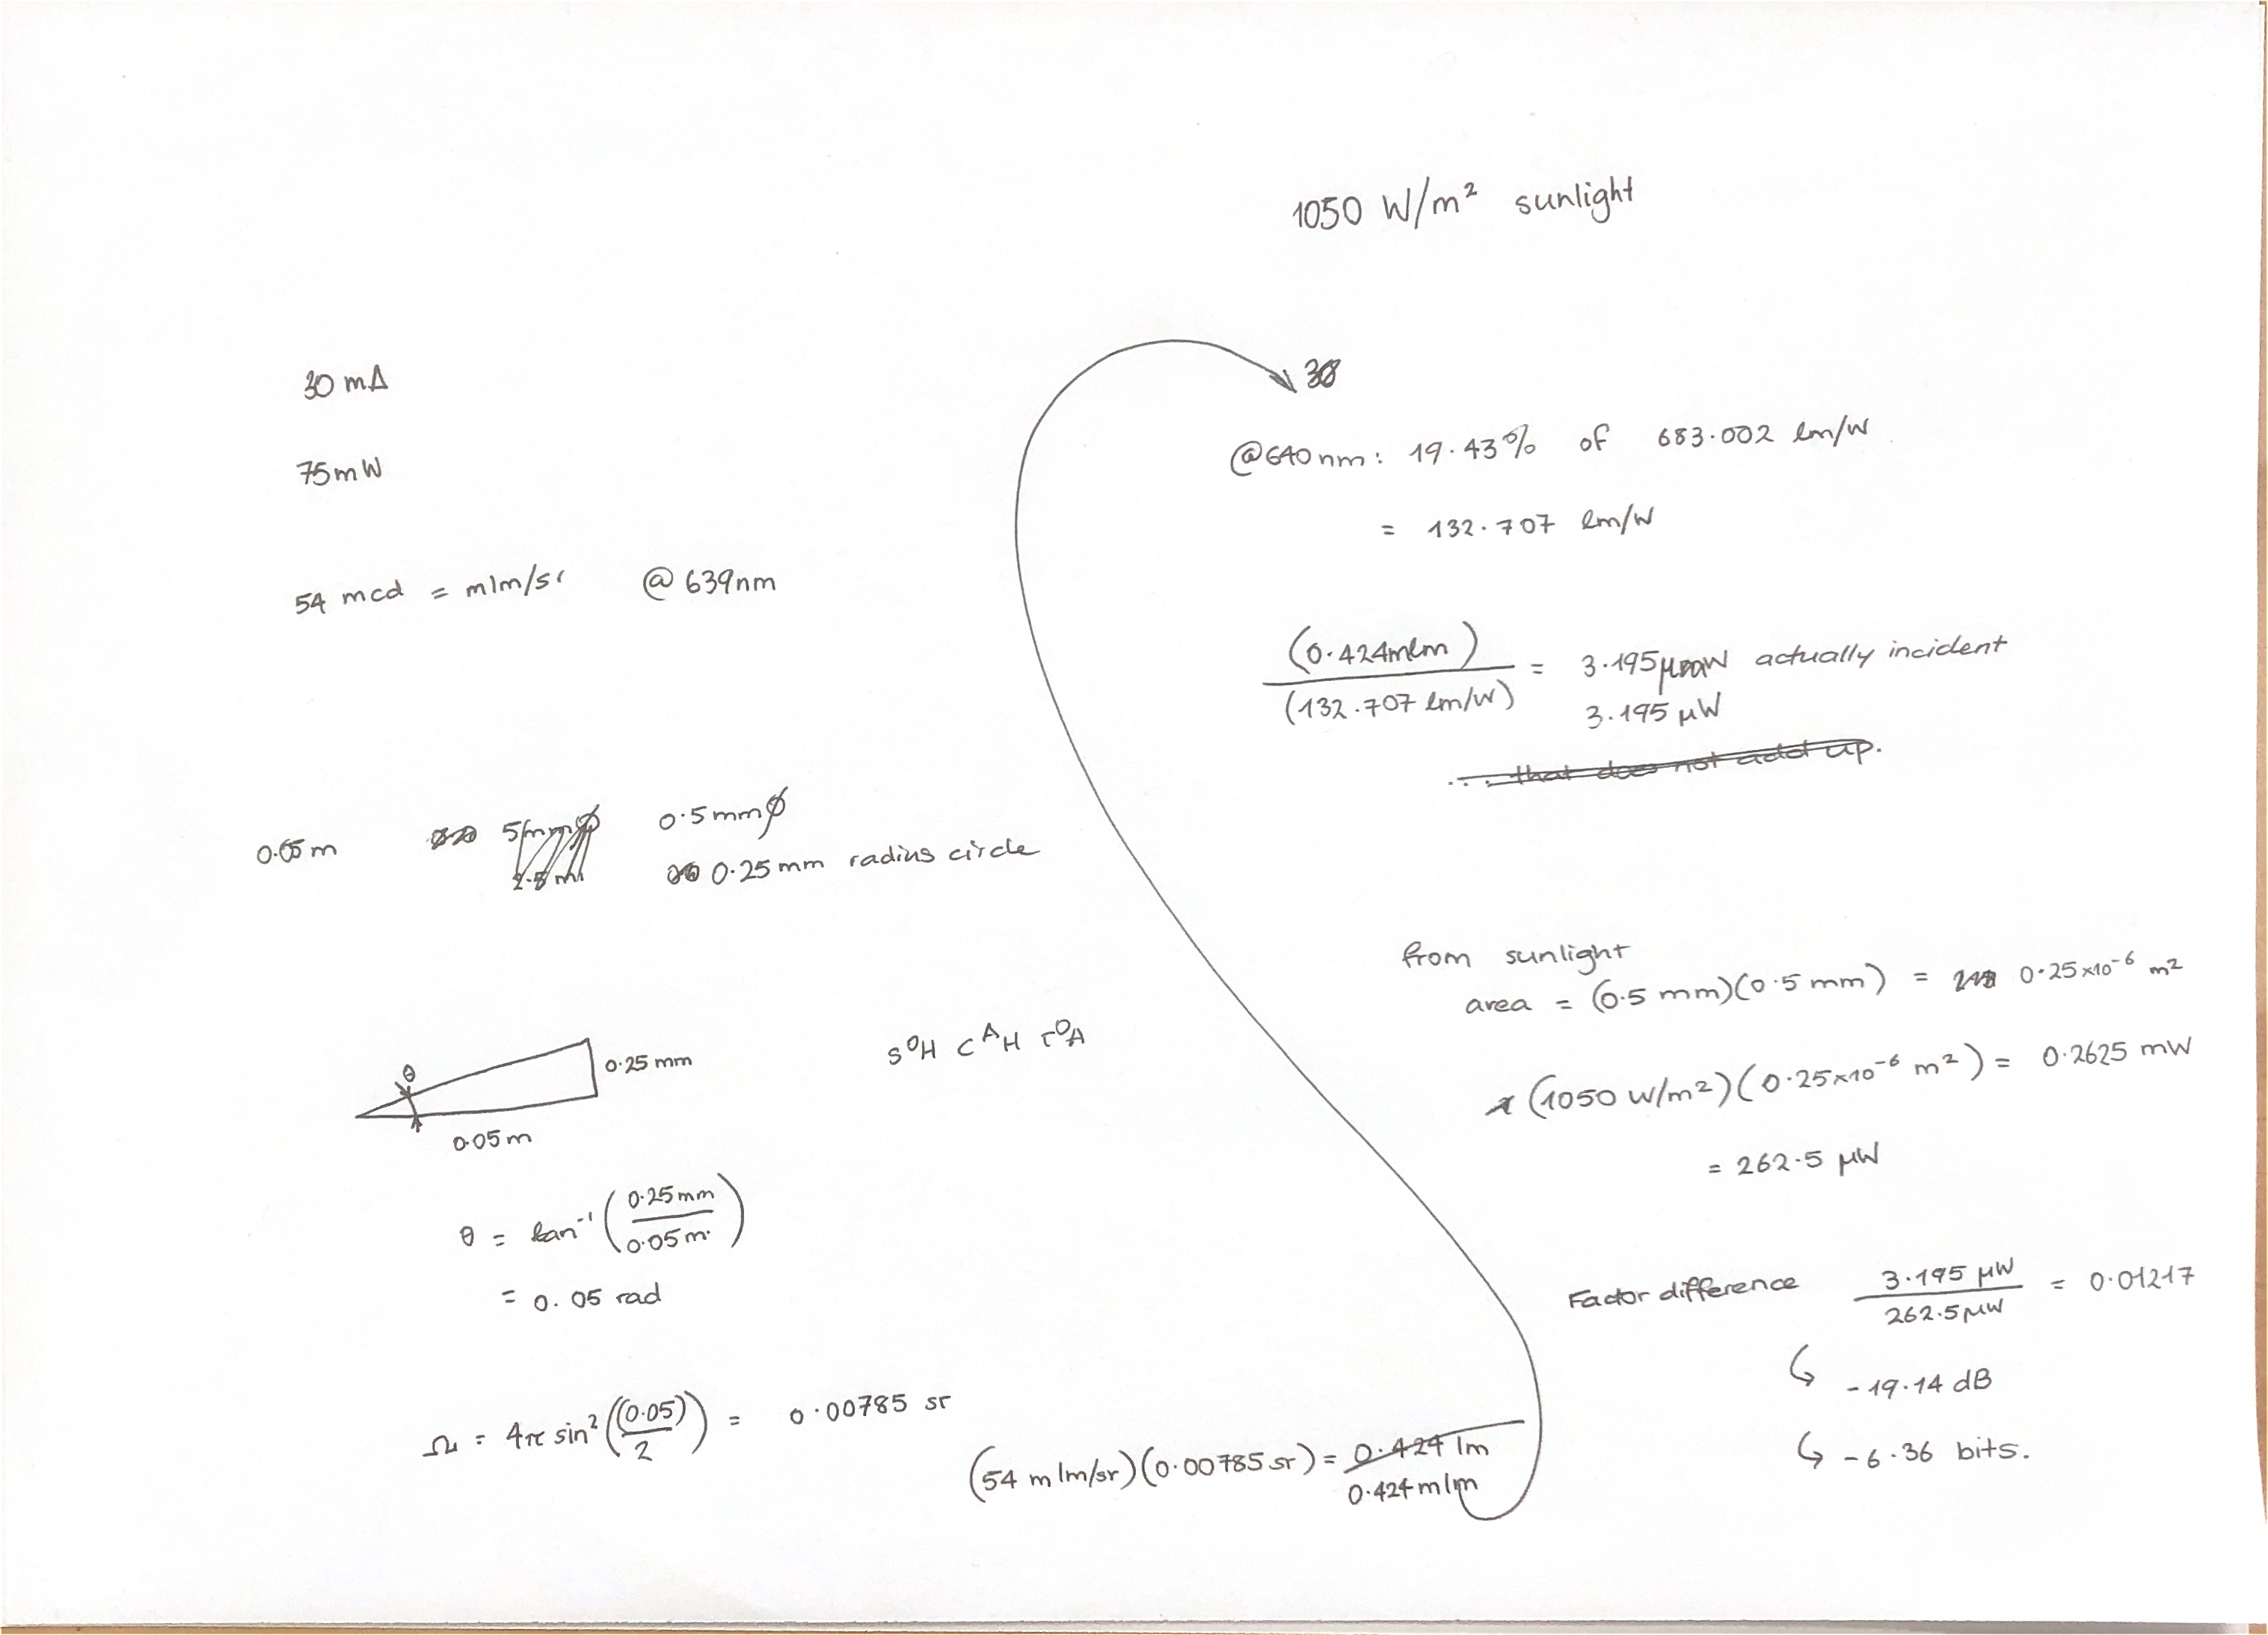 30 mA
75mW
54 mcd = mlm/sr @ 639nm
0.05 m 0.5mmϕ
0.25 mm radius circle
θ 0.25 mm
0.05m
SOH CAH TOA
θ = tan⁻¹ (0.25mm / 0.05m)
= 0.05 rad
Ω = 4π sin² ((0.05) / 2) = 0.00785 sr
(54 mlm/sr)(0.00785 sr) = 0.424 lm
0.424 mlm
1050 W/m² sunlight
@640nm: 19.43% of 683.002 lm/W
= 132.707 lm/W
(0.424mlm) / (132.707 lm/W) = 3.195µW actually incident
3.195 µW
∴ that does not add up.
from sunlight
area = (0.5 mm)(0.5 mm) = 0.25×10⁻⁶ m²
(1050 W/m²)(0.25×10⁻⁶ m²) = 0.2625 mW
= 262.5 µW
Factor difference 3.195 µW / 262.5µW = 0.01217
↳ -19.14 dB
↳ -6.36 bits.